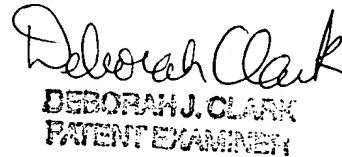 Deborah Clark
DEBORAH J. CLARK
PATENT EXAMINER